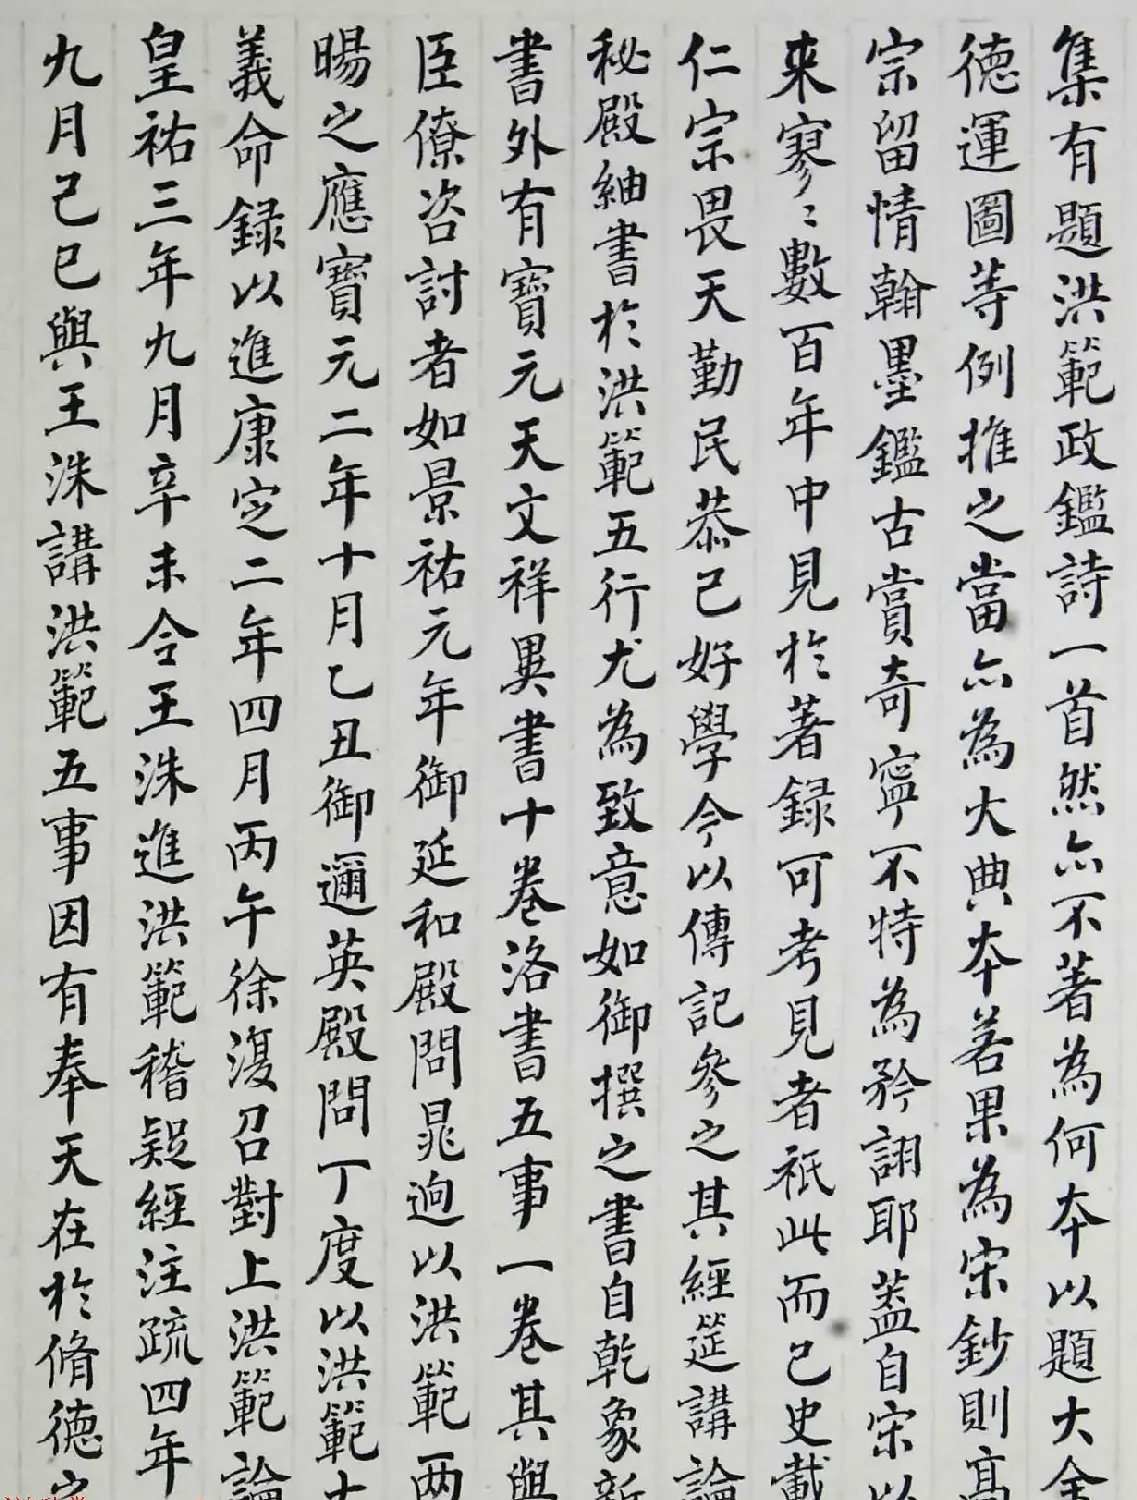 集有題洪範政鑑詩一首然亦不著為何本以題大金
德運圖等例推之當亦為大典本若果為宋鈔則高
宗留情翰墨鑑古賞奇寧不特為矜詡耶葢自宋以
來寥〻數百年中見於著録可考見者祇此而已史載
仁宗畏天勤民恭己好學今以傳記參之其經筵講論
秘殿紬書於洪範五行尤為致意如御撰之書自乾象新
書外有寶元天文祥異書十卷洛書五事一卷其與
臣僚咨討者如景祐元年御延和殿問晁迥以洪範兩
暘之應寶元二年十月乙丑御邇英殿問丁度以洪範大
義命録以進康定二年四月丙午徐復召對上洪範論
皇祐三年九月辛未令王洙進洪範稽疑經注疏四年
九月己巳與王洙講洪範五事因有奉天在於脩德之